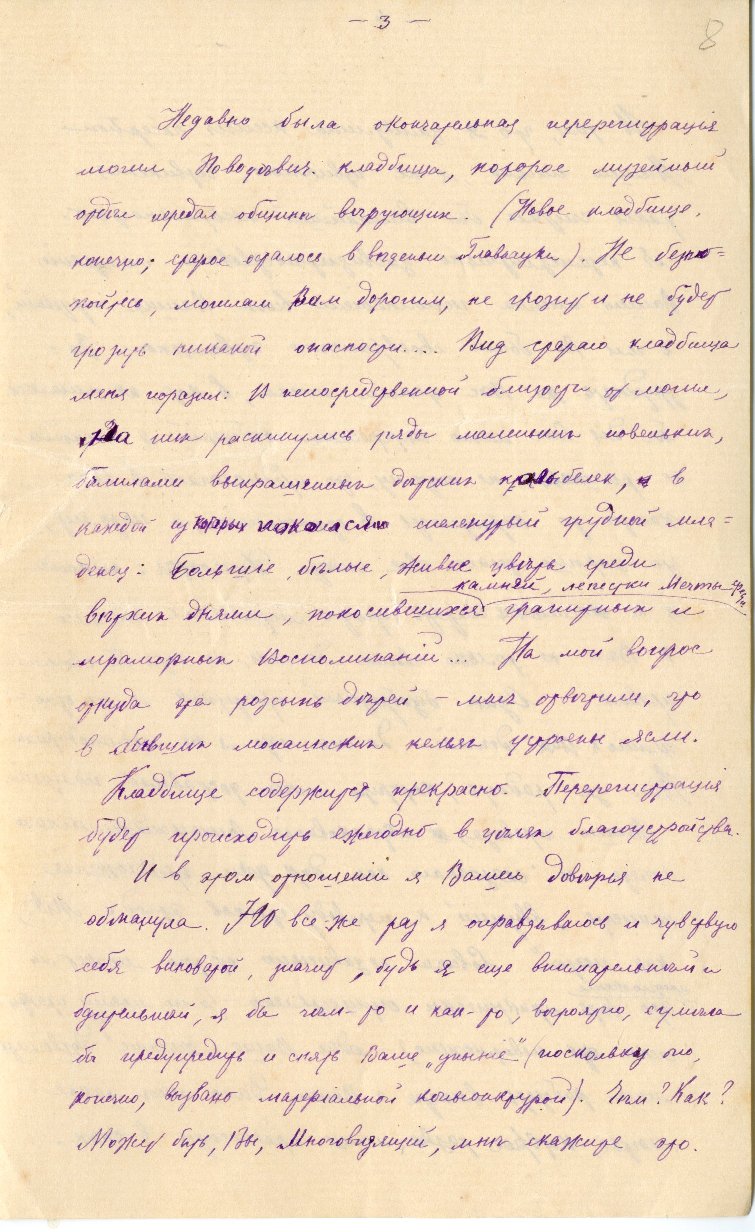 — 3 —
8
Недавно была окончательная перерегистрація
могил Новодѣвич. кладбища, которое музейный
отдѣл передал общинѣ вѣрующих. (Новое кладбище,
конечно; старое осталось в вѣденьи Главнауки). Не безпо=
койтесь, могилам Вам дорогим, не грозит и не будет
грозить никакой опасности.... Вид стараго кладбища
меня поразил: В непосредственной близости от могил,
на них раскинулись ряды маленьких новеньких,
бѣлилами выкрашенных дѣтских колыбелек, в
каждой из которых покоился смеженный грудной мла=
денец: Большіе, бѣлые, живые цвѣты среди
камней, лепестки Мечты среди
вѣтхих днями, покосившихся гранитных и
мраморных Воспоминаній... На мой вопрос
откуда эта розсыпь дѣтей – мнѣ отвѣтили, что
в бывших монашеских кельях устроены ясли.
Кладбище содержится прекрасно. Перерегистрація
будет происходить ежегодно в цѣлях благоустройства.
И в этом отношеніи я Вашего довѣрія не
обманула. Но все-же раз я оправдываюсь и чувствую
себя виноватой, значит, будь я еще внимательней и
бдительней, я бы чѣм-то и как-то, вѣроятно, сумѣла
бы предупредить и снять Ваше „уныніе" (поскольку оно,
конечно, вызвано матеріальной коньюнктурой). Чѣм? Как?
Может быть, Вы, Многовидящій, мнѣ скажите это.